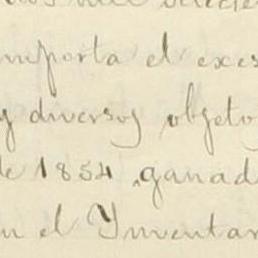 importa el exes
y diversos objetos
de 1854, ganad
en el Inventar